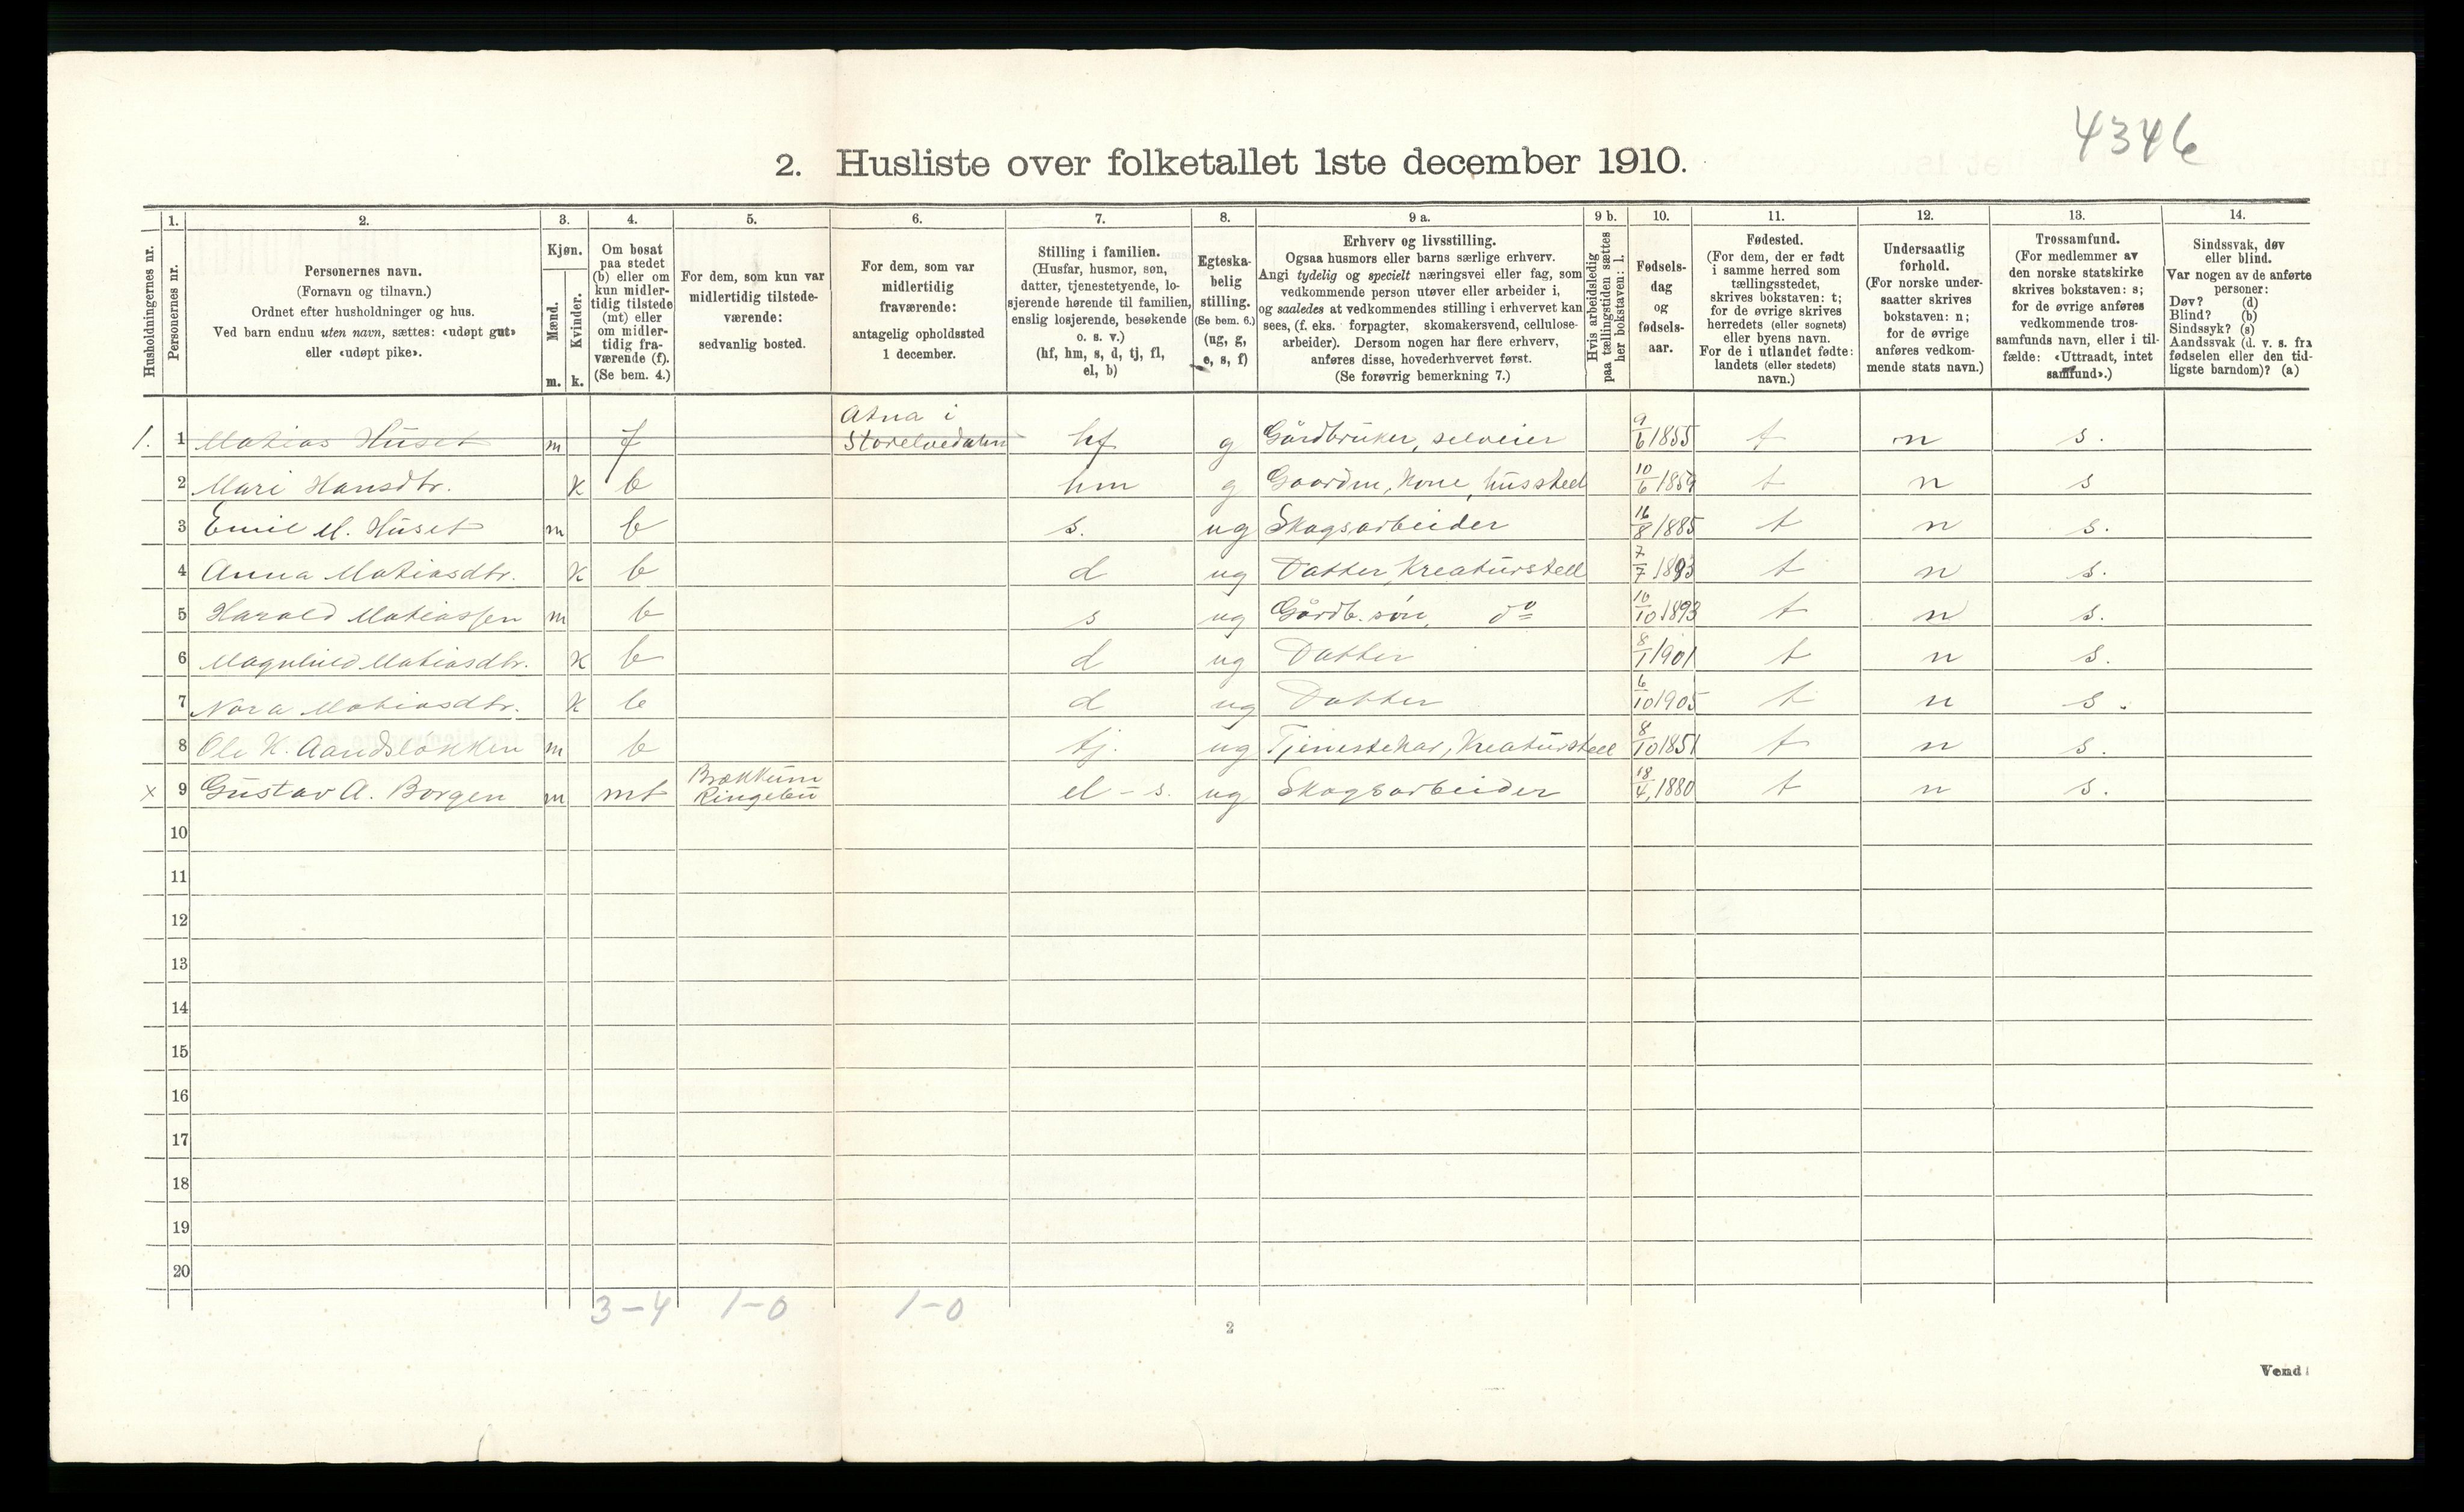 4346
2. Husliste over folketallet 1ste december 1910.
Husholdningernes nr.
1.
Personernes nr.
2.
Personernes navn.
(Fornavn og tilnavn.)
Ordnet efter husholdninger og hus.
Ved barn endnu uten navn, sættes: «udøpt gut»
eller «udøpt pike».
3.
Kjøn.
Mænd.
Kvinder.
m. k.
4.
Om bosat
paa stedet
(b) eller om
kun midler-
tidig tilstede
(mt) eller
om midler-
tidig fra-
værende (f).
(Se bem. 4.)
5.
For dem, som kun var
midlertidig tilstede-
værende:
sedvanlig bosted.
6.
For dem, som var
midlertidig
fraværende:
antagelig opholdssted
1 december.
7.
Stilling i familien.
(Husfar, husmor, søn,
datter, tjenestetyende, lo-
sjerende hørende til familien,
enslig losjerende, besøkende
o. s. v.)
(hf, hm, s, d, tj, fl,
el, b)
8.
Egteska-
belig
stilling.
(Se bem. 6.)
(ug, g,
e, s, f)
9 a.
Erhverv og livsstilling.
Ogsaa husmors eller barns særlige erhverv.
Angi tydelig og specielt næringsvei eller fag, som
vedkommende person utøver eller arbeider i,
og saaledes at vedkommendes stilling i erhvervet kan
sees, (f. eks. forpagter, skomakersvend, cellulose-
arbeider). Dersom nogen har flere erhverv,
anføres disse, hovederhvervet først.
(Se forøvrig bemerkning 7.)
9 b.
Hvis arbeidsledig
paa tællingstiden sættes
her bokstaven: l.
10.
Fødsels-
dag
og
fødsels-
aar.
11.
Fødested.
(For dem, der er født
i samme herred som
tællingsstedet,
skrives bokstaven: t;
for de øvrige skrives
herredets (eller sognets)
eller byens navn.
For de i utlandet fødte:
landets (eller stedets)
navn.)
12.
Undersaatlig
forhold.
(For norske under-
saatter skrives
bokstaven: n;
for de øvrige
anføres vedkom-
mende stats navn.)
13.
Trossamfund.
(For medlemmer av
den norske statskirke
skrives bokstaven: s;
for de øvrige anføres
vedkommende tros-
samfunds navn, eller i til-
fælde: «Uttraadt, intet
samfund».)
14.
Sindssvak, døv
eller blind.
Var nogen av de anførte
personer:
Døv? (d)
Blind? (b)
Sindssyk? (s)
Aandssvak (d. v. s. fra
fødselen eller den tid-
ligste barndom)? (a)
1. 1 Matias Huset m f Atna i Storelvedalen hf g Gårdbruker, selveier 9/6 1855 t n s.
2 Mari Hansdtr. k b hm g Gaardm, Kone, husstell 10/6 1859 t n s
3 Emil M. Huset m b s. ug Skogsarbeider 16/8 1885 t n s.
4 Anna Matiasdtr. k b d ug Datter, Kreaturstell 7/7 1893 t n s.
5 Harald Matiassen m b s ug Gårdb. søn, do 10/10 1893 t n s.
6 Magnhild Matiasdtr. k b d ug Datter 8/1 1901 t n s.
7 Nora Matiasdtr. k b d ug Datter 6/10 1905 t n s.
8 Ole K. Aandsløkken m b tj. ug Tjenestekar, Kreaturstell 8/10 1851 t n s.
x 9 Gustav A. Borgen m mt Brækkum Ringebu el - s. ug Skogsarbeider 18/4 1880 t n s.
10
11
12
13
14
15
16
17
18
19
20
3-4 1-0 1-0
2
Vend!